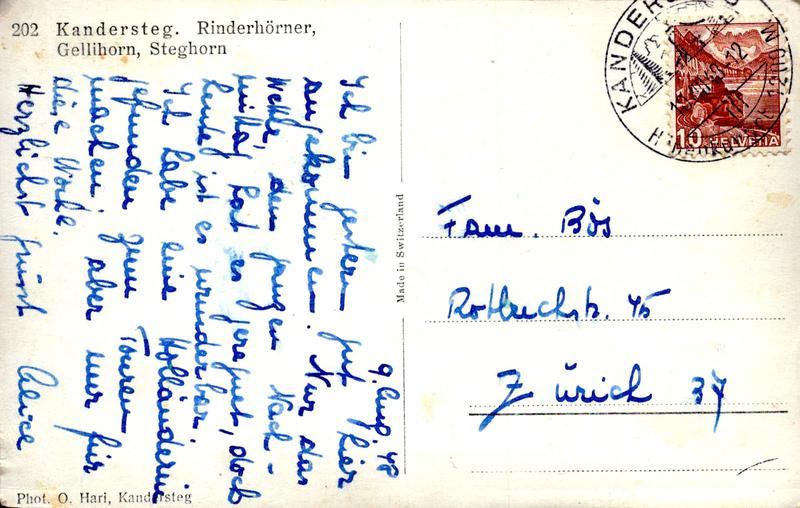 202 Kandersteg. Rinderhörner,
Gellihorn, Steghorn
9. Aug. 48
Ich bin gestern gut hier
angekommen. Nur das
Wetter, den ganzen Nach-
mittag hat es geregnet, doch
heute ist es wunderbar.
Ich habe eine Holländerin
gefunden zum Touren
machen, aber nur für
diese Woche.
Herzlichst grüsst Alice
Phot. O. Hari, Kandersteg
Made in Switzerland
KANDERSTEG
10 HELVETIA
Fam. Bös
Rotbuchstr. 45
Zürich 37